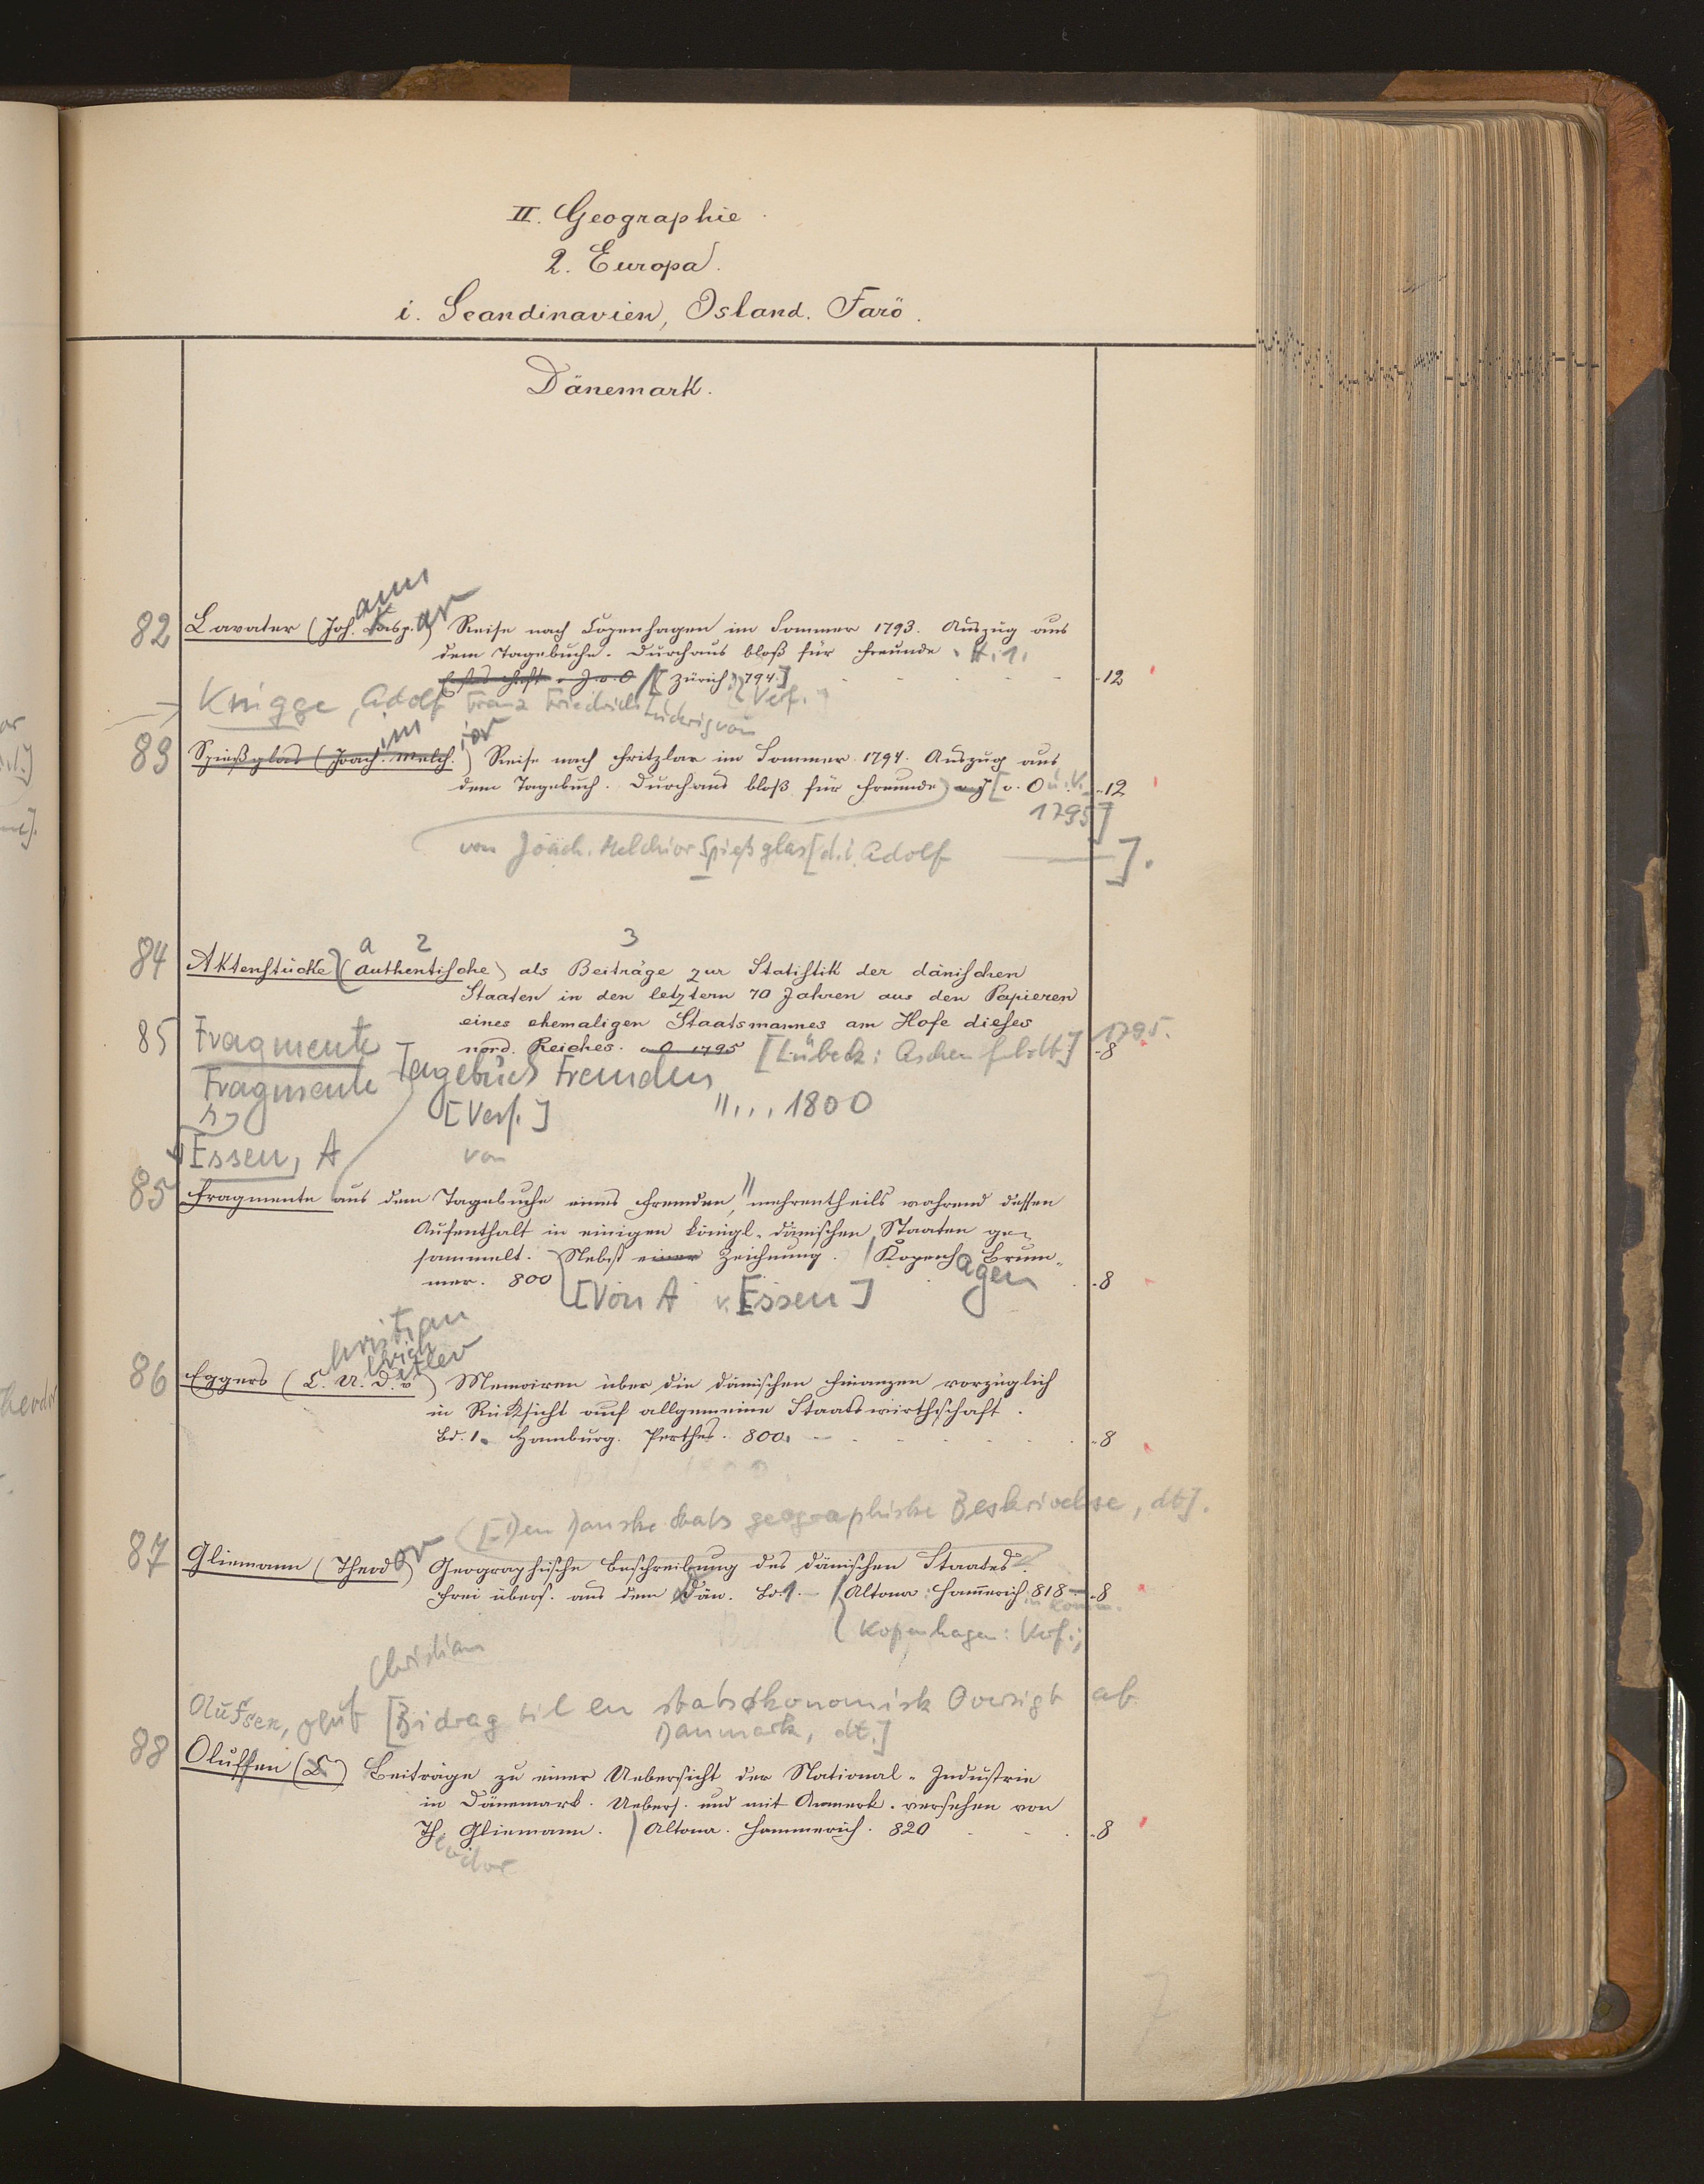 II. Geographie
2. Europa.
i. Scandinavien, Island. Farö.
Dänemark.
ann ar
82 Lavater (Joh. Kasp.) Reise nach Copenhagen im Sommer 1793. Auszug aus
dem Tagebuche. Durchaus bloß für Freunde. H. 1.
[Zürich] 794.] -12
Knigge, Adolf Franz Friedrich Ludwig von [Verf.]
im ior
83 Spießglas (Joach. Melch.) Reise nach Fritzlar im Sommer 1794. Auszug aus
dem Tagebuch. Durchaus bloß für Freunde) [o. O -12
1795]
von Joach. Melchior Spießglas [d. i. Adolf — ].
a 2 3
84 Aktenstücke (authentische) als Beiträge zur Statistik der dänischen
Staaten in den letztern 70 Jahren aus den Papieren
eines ehemaligen Staatsmannes am Hofe dieses
nord. Reiches. o O 1795 [Lübeck: Aschenfeldt] 1795. -8
85 Fragmente
Fragmente Tagebuch Fremden
[Verf.] "... 1800
Essen, A von
85 Fragmente aus dem Tagebuche eines Fremden, mehrentheils während dessen
Aufenthalt in einigen königl. dänischen Staaten ge-
sammelt. Nebst einer Zeichnung. Kopenhagen Brum-
mer. 800 -8
[Von A v. Essen]
hristian
lrich etlev
86 Eggers (C. U. D. v) Memoiren über die dänischen Finanzen vorzüglich
in Rücksicht auf allgemeine Staatswirthschaft.
Bd. 1. Hamburg. Perthes. 800. -8
([Den Danske Stats geographiske Beskrivelse, dt].
87 Gliemann (Theodor) Geographische Beschreibung des dänischen Staates.
Frei übers. aus dem Dän. Bd. 1. — Altona: Hammerich 818 -8
in Komm.
Kopenhagen: Verf.;
Christian
Olufsen, Oluf [Bidrag til en statsøkonomisk Oversigt af
Danmark, dt.]
88 Olufsen (C) Beiträge zu einer Uebersicht der National-Industrie
in Dänemark. Uebers. und mit Anmerk. versehen von
Th. Gliemann. Altona. Hammerich. 820 -8
eodor